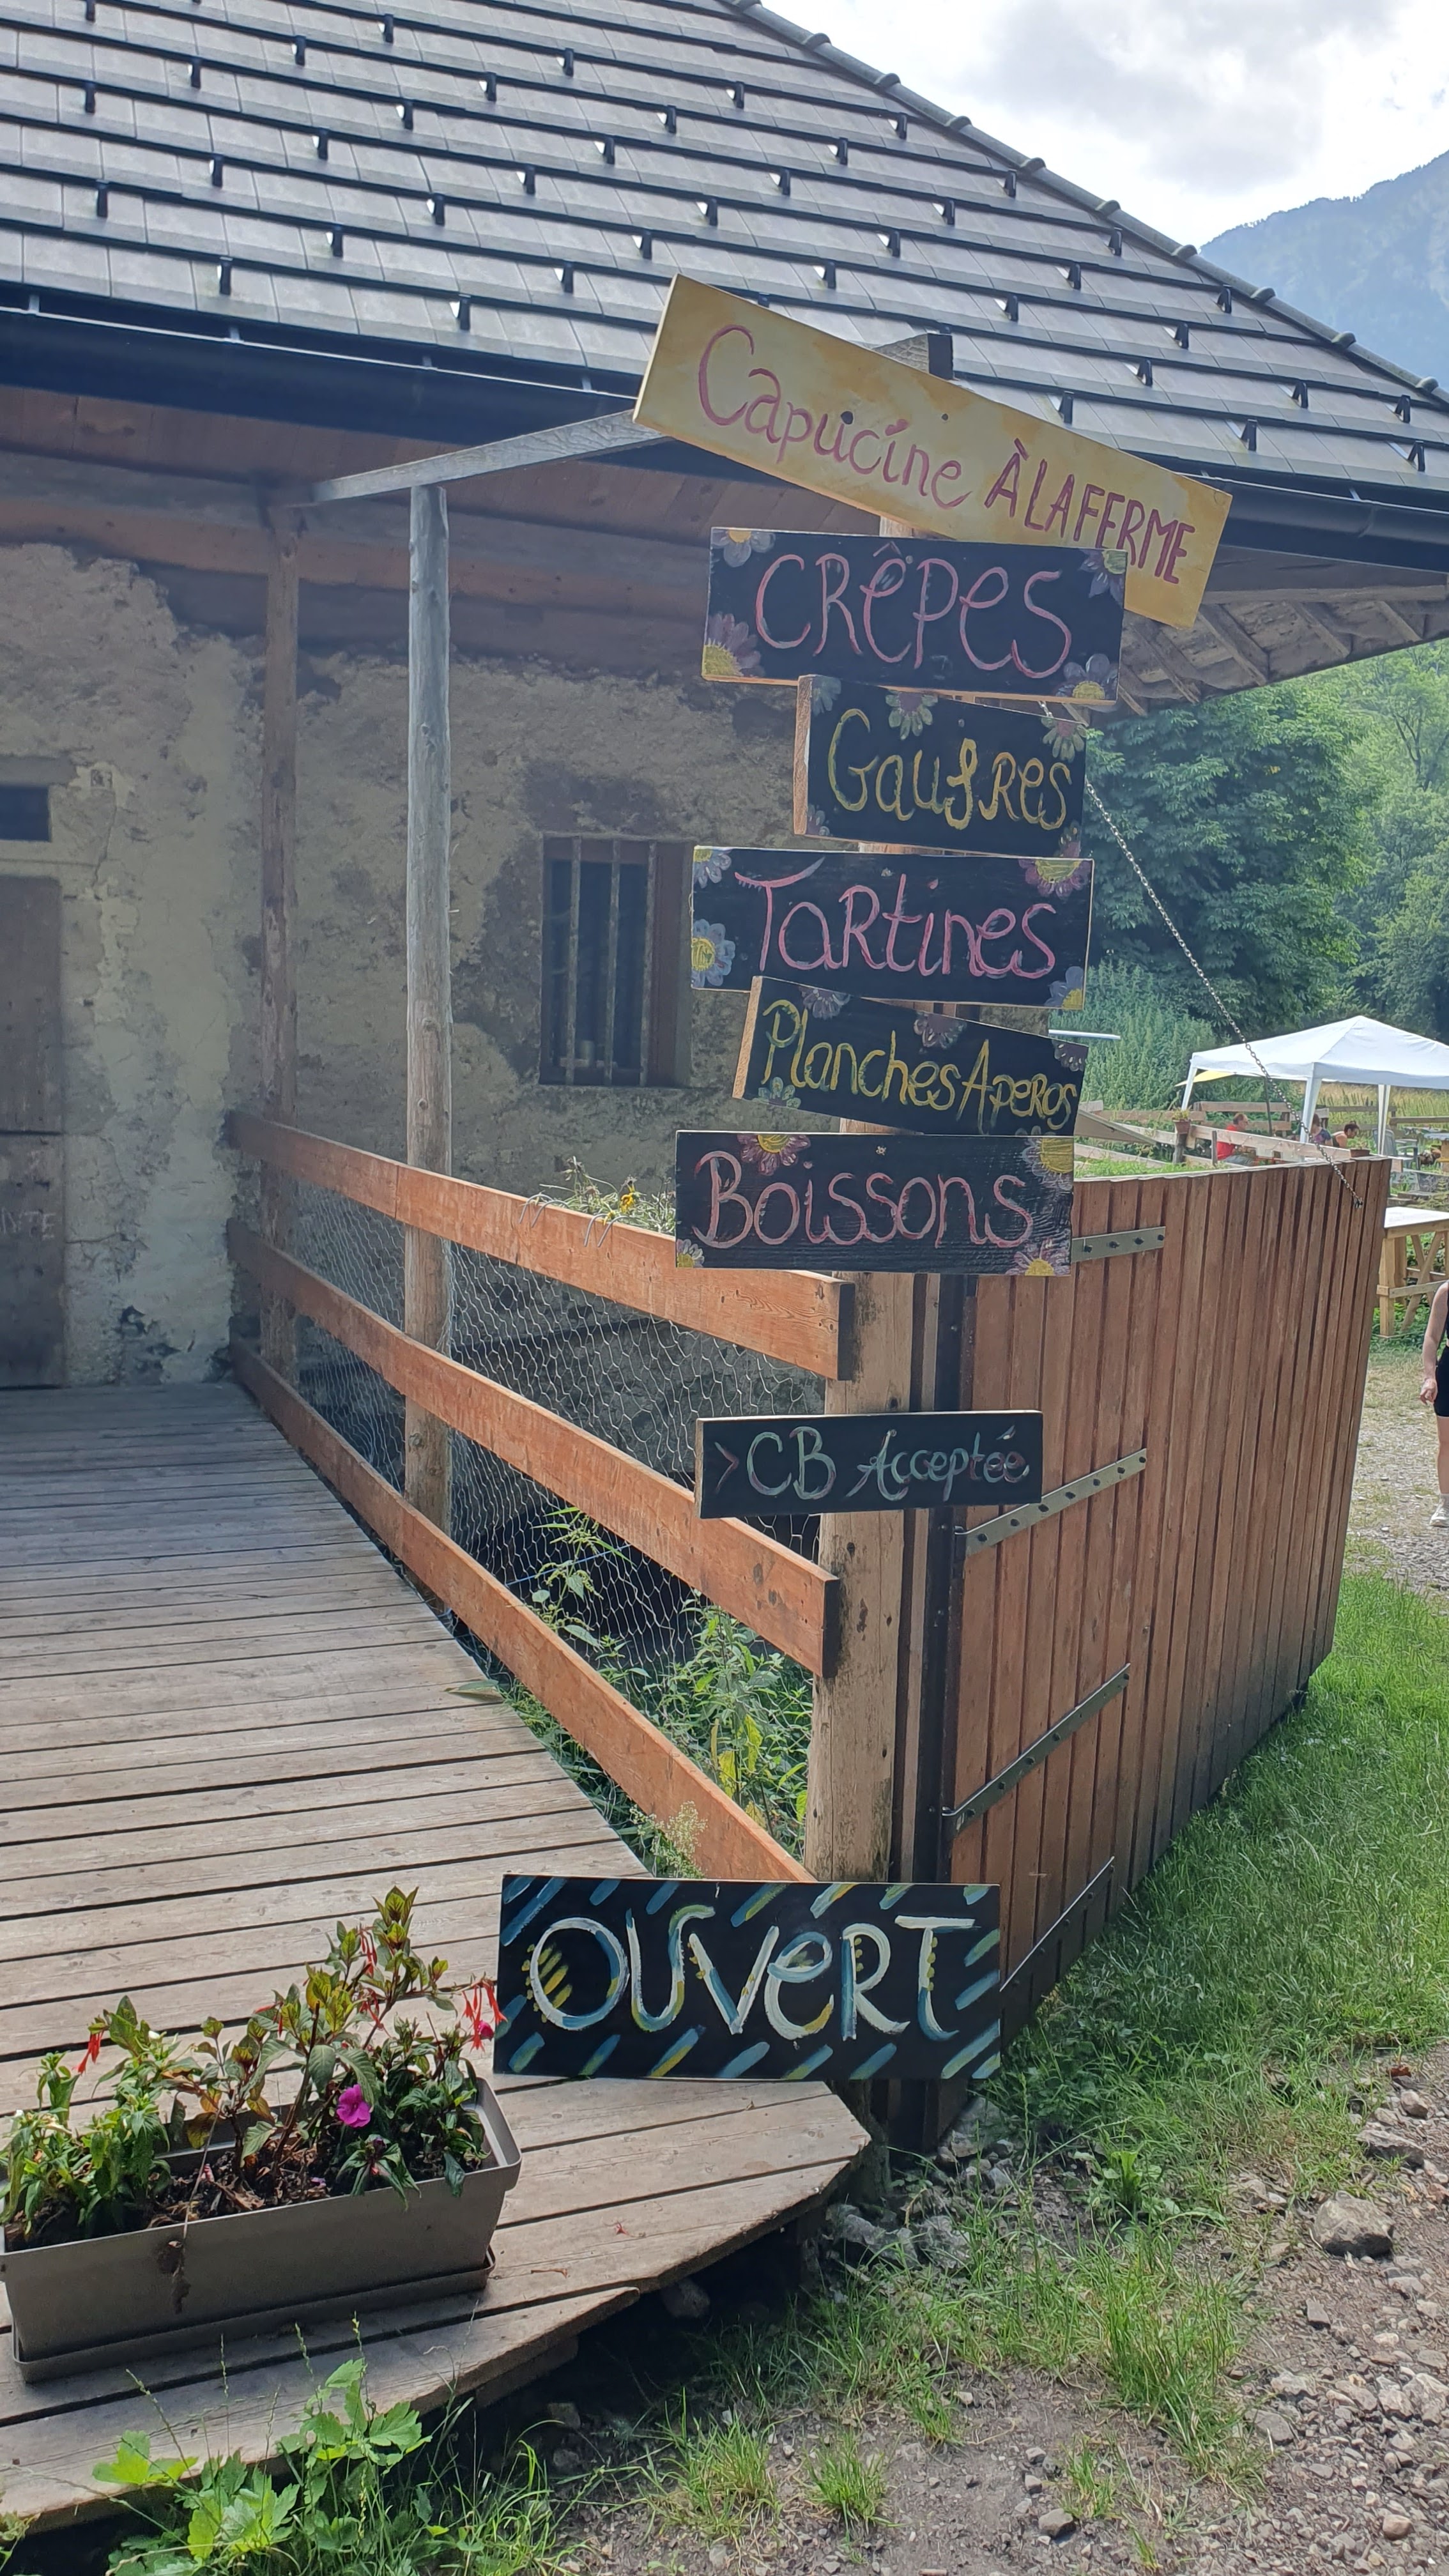 Capucine À LA FERME
CRêPes
GaufRes
TaRtines
Planches ApeRos
Boissons
> CB Acceptée
OUVeRT